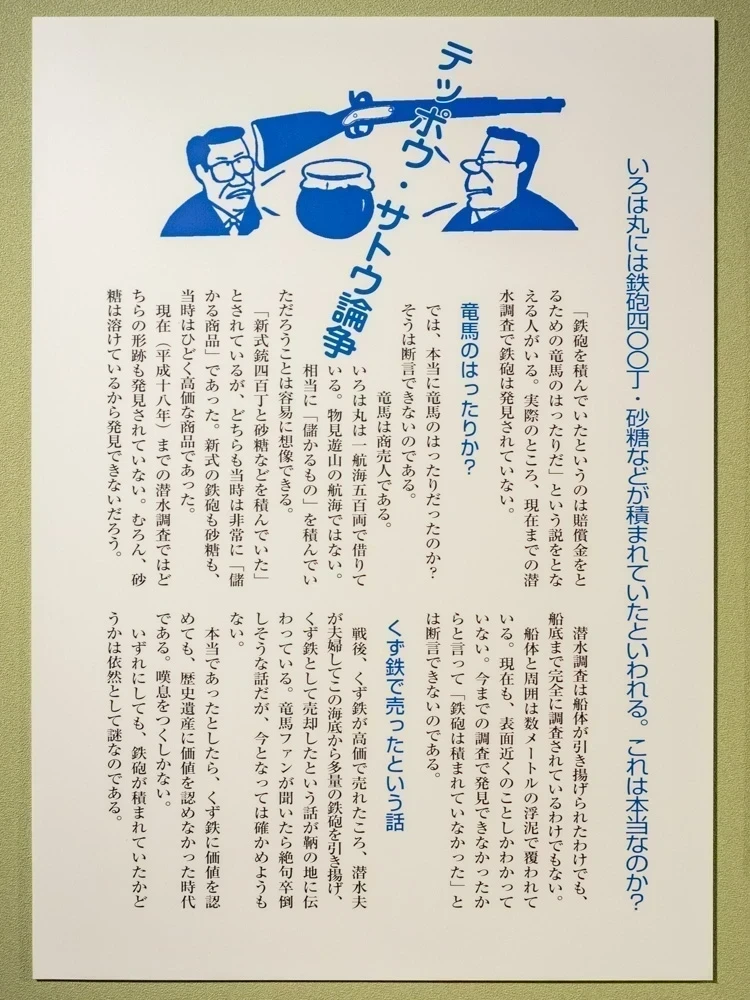 いろは丸には鉄砲四〇〇丁・砂糖などが積まれていたといわれる。これは本当なのか?
テッポウ・サトウ論争
「鉄砲を積んでいたというのは賠償金をと
るための竜馬のはったりだ」という説をとな
える人がいる。実際のところ、現在までの潜
水調査で鉄砲は発見されていない。
竜馬のはったりか?
では、本当に竜馬のはったりだったのか?
そうは断言できないのである。
竜馬は商売人である。
いろは丸は一航海五百両で借りて
いる。物見遊山の航海ではない。
相当に「儲かるもの」を積んでい
ただろうことは容易に想像できる。
「新式銃四百丁と砂糖などを積んでいた」
とされているが、どちらも当時は非常に「儲
かる商品」であった。新式の鉄砲も砂糖も、
当時はひどく高価な商品であった。
現在(平成十八年)までの潜水調査ではど
ちらの形跡も発見されていない。むろん、砂
糖は溶けているから発見できないだろう。
潜水調査は船体が引き揚げられたわけでも、
船底まで完全に調査されているわけでもない。
船体と周囲は数メートルの浮泥で覆われて
いる。現在も、表面近くのことしかわかって
いない。今までの調査で発見できなかったか
らと言って「鉄砲は積まれていなかった」と
は断言できないのである。
くず鉄で売ったという話
戦後、くず鉄が高価で売れたころ、潜水夫
が夫婦してこの海底から多量の鉄砲を引き揚げ、
くず鉄として売却したという話が鞆の地に伝
わっている。竜馬ファンが聞いたら絶句卒倒
しそうな話だが、今となっては確かめようも
ない。
本当であったとしたら、くず鉄に価値を認
めても、歴史遺産に価値を認めなかった時代
である。嘆息をつくしかない。
いずれにしても、鉄砲が積まれていたかど
うかは依然として謎なのである。